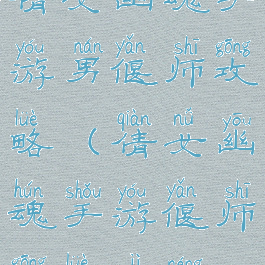 yóu nán yǎn shī gōng
游 男 偃 师 攻
lüè qiàn nǚ yōu
略 （ 倩 女 幽
hún shǒu yóu yǎn shī
魂 手 游 偃 师